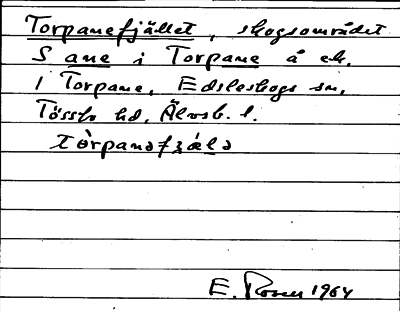 Torpanefjället, skogsområdet
S ane i Torpane å ek.
1 Torpane, Edsleskogs sn,
Tössbo hd, Älvsb. l.
tòrpanəfʒælə
E. Rosen 1964